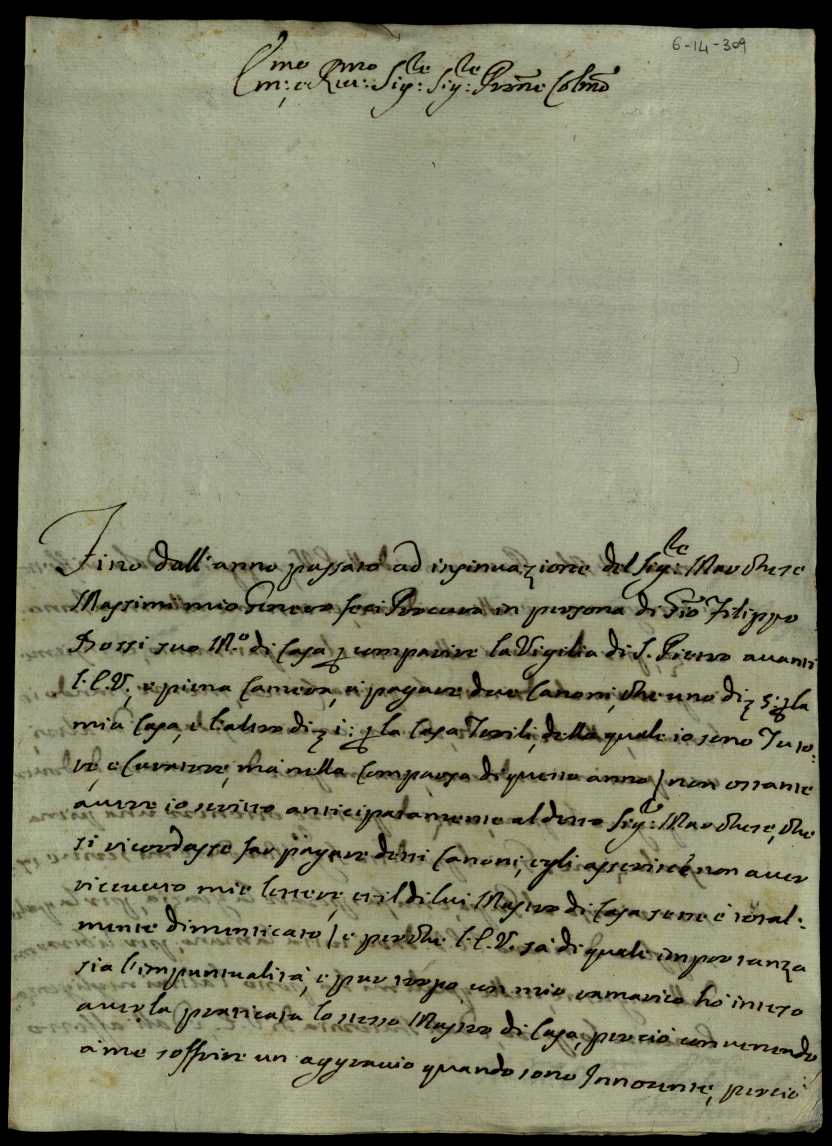 6-14-309
Em:mo e Rev:mo Sig:re Sig:re Prone Colmo
Fino dall'anno passato ad insinuazione del Sig:re Marchese
Massimi mio Genero feci Procura in persona di Gio Filippo
Rossi suo M.o di Casa p comparire la Vigilia di S. Pietro avanti
l'E.V., e piena Camera, e pagare due Canoni, che uno di 5: p la
mia Casa, e l'altro di i: p la Casa Torili, della quale io sono Tuto:
re, e Curatore, ma nella Comparsa di questo anno / non ostante
avere io scritto anticipatamente al detto Sig:re Marchese, che
si ricordasse far pagare detti Canoni, egli asserisce non aver
ricevuto mie lettere, et il di lui Mastro di Casa sene è total:
mente dimenticato / e perche l'E.V. sà di quale importanza
sia l'impuntualità, e pur troppo con mio ramarico hò inteso
averla praticata lo stesso Mastro di Casa, perciò convenendo
à me soffrire un aggravio quando sono Innocente, perciò